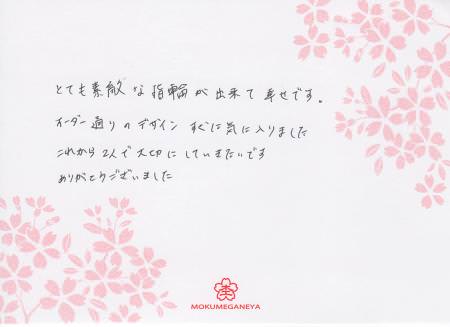 とても素敵な指輪が出来て幸せです。
オーダー通りのデザインすぐに気に入りました
これから2人で大切にしていきたいです
ありがとうございました
MOKUMEGANEYA